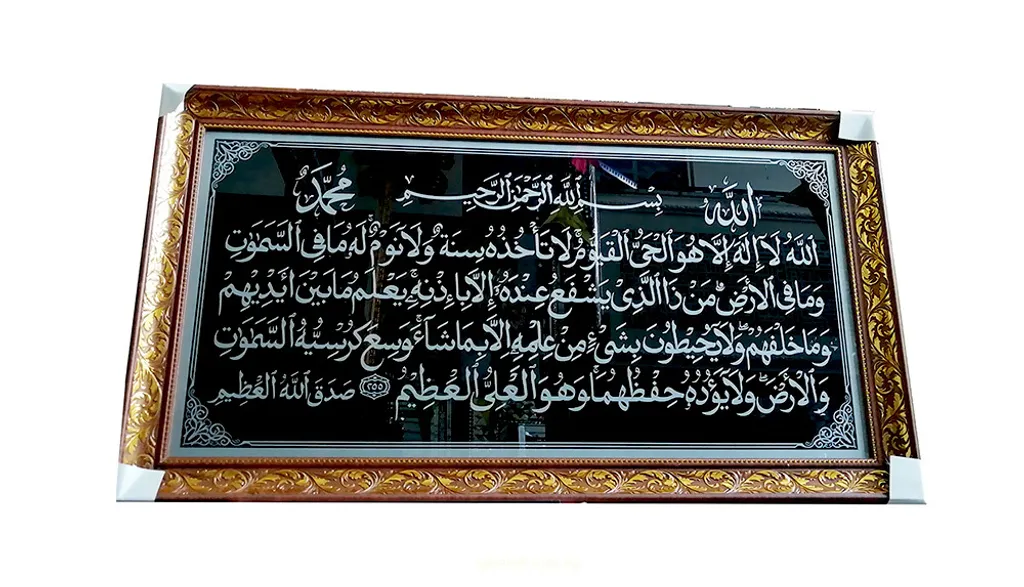 الله بِسْمِ ٱللَّهِ ٱلرَّحْمَٰنِ ٱلرَّحِيمِ مُحَمَّدٌ
اَللّٰهُ لَآ إِلٰهَ إِلَّا هُوَ الْحَىُّ الْقَيُّوْمُ ۚ لَا تَأْخُذُهُ سِنَةٌ وَّلَا نَوْمٌ ۗ لَهُ مَا فِى السَّمٰوٰتِ
وَمَا فِى الْاَرْضِ ۗ مَنْ ذَا الَّذِىْ يَشْفَعُ عِنْدَهُٓ إِلَّا بِاِذْنِهٖ ۗ يَعْلَمُ مَا بَيْنَ اَيْدِيْهِمْ
وَمَا خَلْفَهُمْ ۖ وَلَا يُحِيْطُوْنَ بِشَىْءٍ مِنْ عِلْمِهٖٓ اِلَّا بِمَا شَآءَ ۚ وَسِعَ كُرْسِيُّهُ السَّمٰوٰتِ
وَالْاَرْضَ ۖ وَلَا يَؤُدُهُ حِفْظُهُمَا ۚ وَهُوَ الْعَلِىُّ الْعَظِيْمُ ﴿٢٥٥﴾ صَدَقَ اللّٰهُ الْعَظِيْمِ